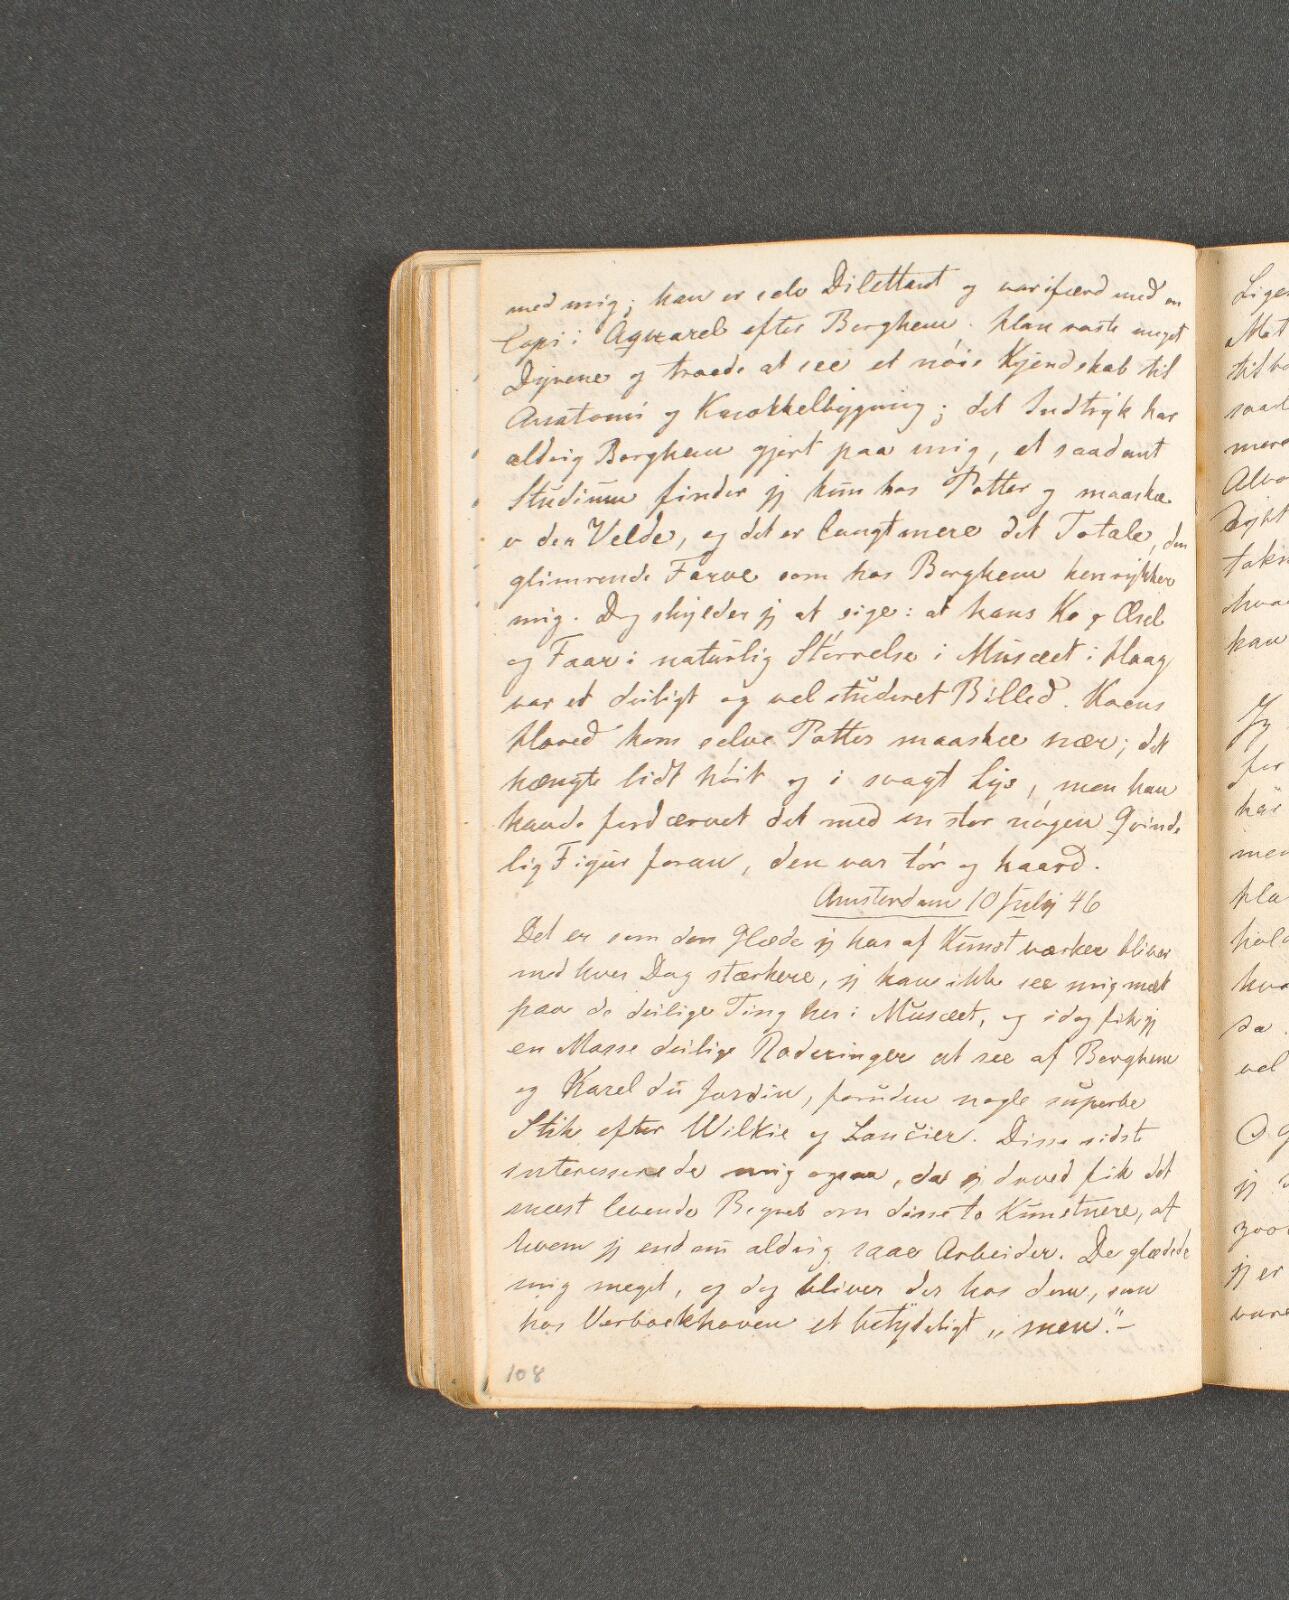 med mig; han er selv Dilettant og var ifærd med en
Copi i Aqvarel efter Berghem. Han roste meget
Dyrene og troede at see et nöie Kjendskab til
Anatomi og Knokkelbygning; det Indtryk har
aldrig Berghem gjort paa mig, et saadant
Studium finder jeg kun hos Potter og maaskee
v der Velde, og det er langt mere det Totale, den
glimrende Farve som hos Berghem henrykker
mig. Dog skylder jeg at sige: at hans Ko og Æsel
og Faar i naturlig Störrelse i Musæet i Haag
var et deiligt og vel studeret Billed. Koens
Hoved kom selve Potter maaskee nær; det
hængte lidt höit og i svagt Lys, men han
havde fordærvet det med en stor nögen Qvinde
lig Figur foran, den var tör og haard.
Amsterdam 10 July 46
Det er som den Glæde jeg har af Kunstværker bliver
med hver Dag stærkere, jeg kan ikke see mig mæt
paa de deilige Ting her i Musæet, og idag fik jeg
en Masse deilige Raderinger at see af Berghem
og Karel du Jardin, foruden nogle superbe
Stik efter Wilkie og Lancier. Disse sidste
interesserede mig ogsaa, da jeg derved fik det
mest levende Begreb om disse to Kunstnere, af
hvem jeg endnu aldrig saae Arbeider. De glædede
mig meget, og dog bliver der hos dem, som
hos Verboekhoven et betydeligt „men".-
108
Lige
Mat
mere
kan
Jeg
for
har
men
hold
sa
vel
Og
jeg
jeg er
vare